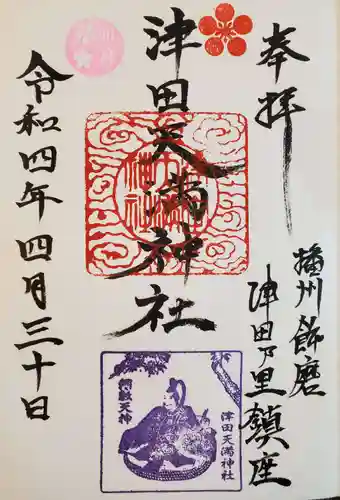 奉拝
播州飾磨
津田乃里鎮座
津田天満神社
令和四年四月三十日
綱敷天神
津田天満神社